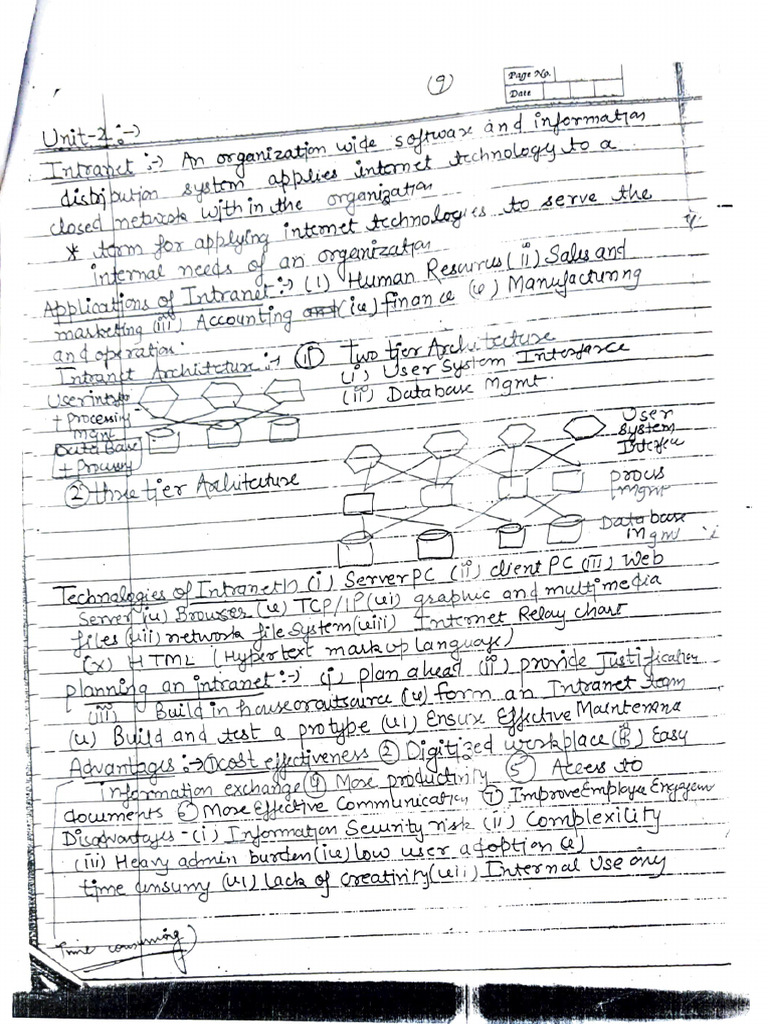 (9)
Page No.
Date
Unit-2 :-)
Intranet :-) An organization wide software and information
distribution system applies internet technology to a
closed network within the organization
* term for applying internet technologies to serve the
internal needs of an organization
Applications of Intranet :-) (i) Human Resources (ii) Sales and
marketing (iii) Accounting (iv) finance (v) Manufacturing
and operation.
Intranet Architecture :-) (1) Two tier Architecture
(i) User System Interface
(ii) Database Mgmt.
User
+ processing
mgmt
Data Base
+ Processing
User
System
Interface
② three tier Architecture
mgmt
Database
mgmt
Technologies of Intranet (i) Server PC (ii) client PC (iii) Web
Server (iv) Browser (v) TCP/IP (vi) graphic and multimedia
files (vii) network file System (viii) Internet Relay chart
(x) HTML (Hypertext mark up language)
planning an intranet :-) (i) plan ahead (ii) provide Justification
(iii) Build in house or outsource (iv) form an Intranet team
(v) Build and test a protype (vi) Ensure Effective Maintenana
Advantages :-) ① cost effectiveness ② Digitized workplace Easy
Information exchange ④ More productivity ⑤ Acess to
documents ⑥ More Effective Communication ⑦ Improve Employee
Disadvantages - (i) Information Security risk (ii) Complexicity
(iii) Heavy admin burden (iv) low user adoption (v)
time (vi) lack of creativity (vii) Internal Use only
Time consuming)